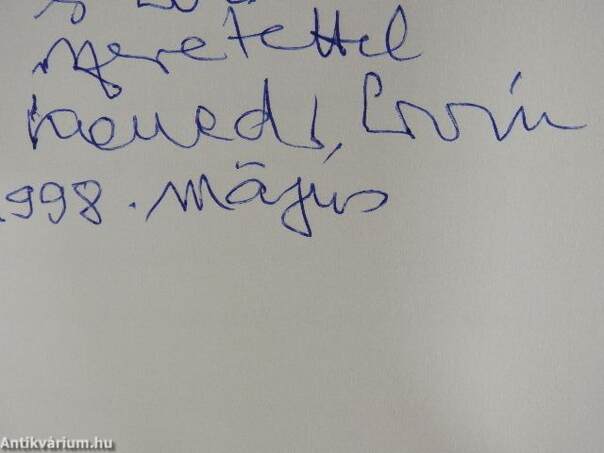 szeretettel
Kenedi Ervin
1998. május
Antikvárium.hu